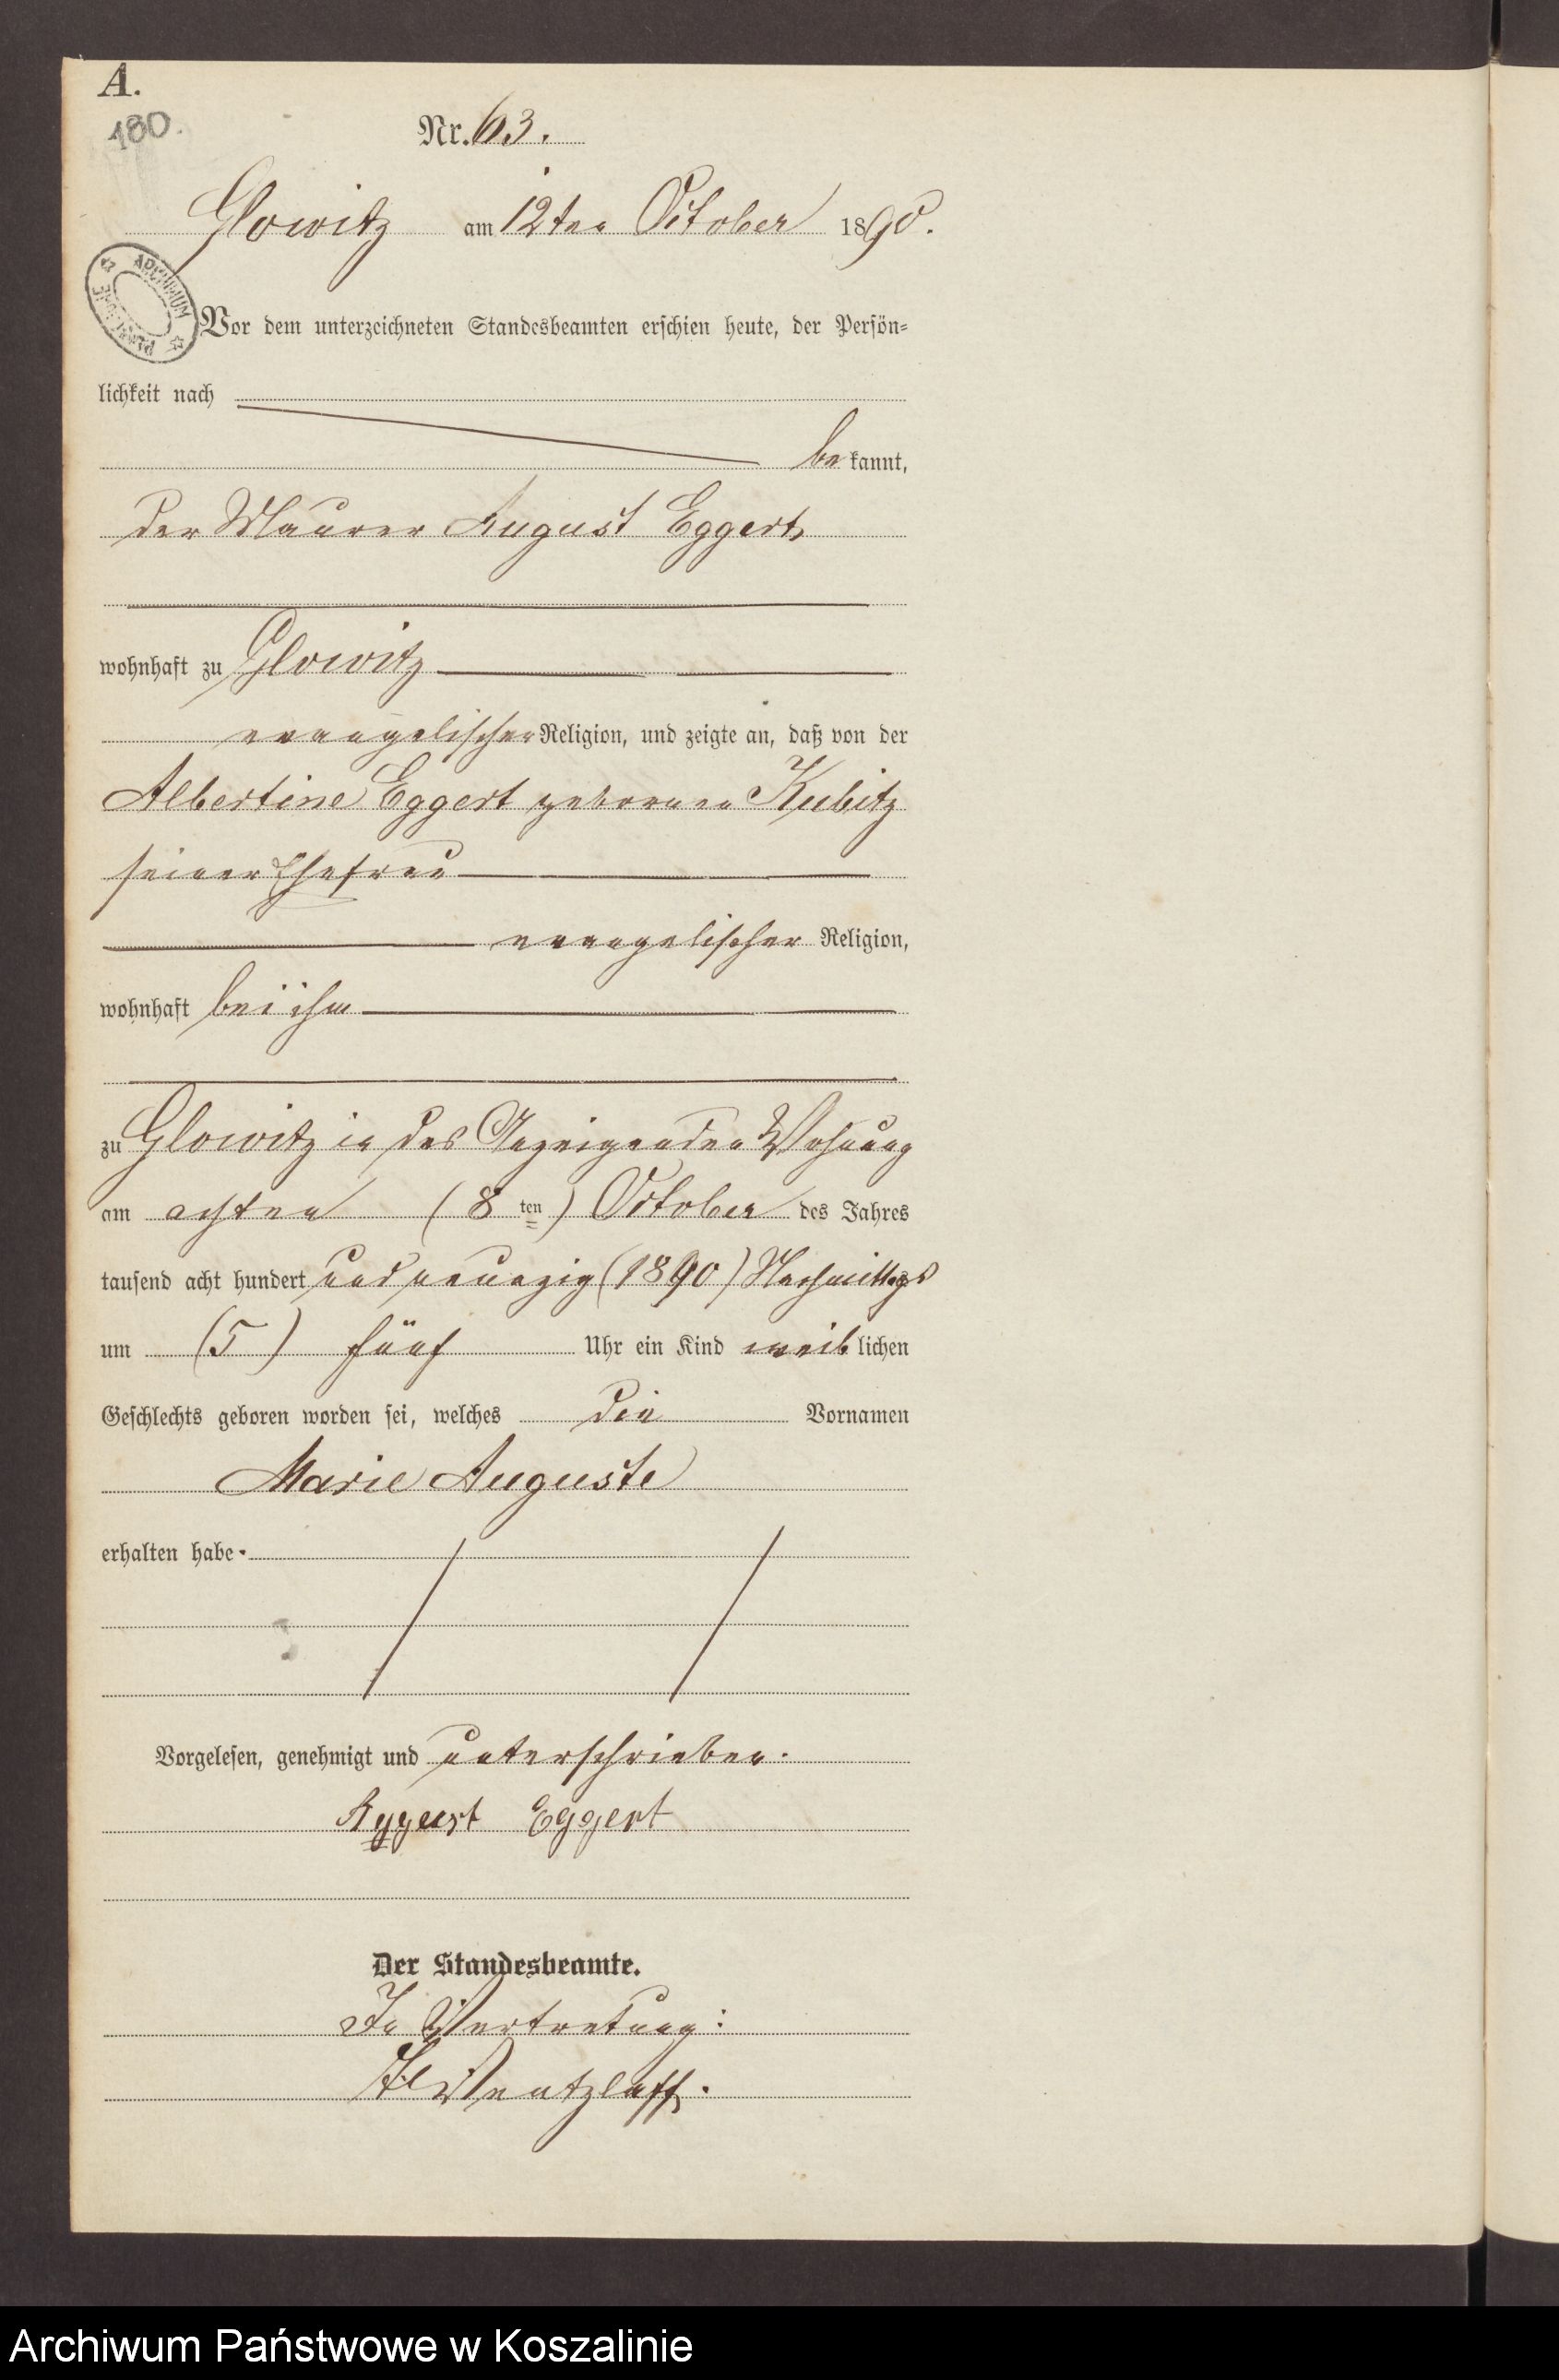 A.
180.
Nr. 63.
Glowitz am 12ten October 1890.
ARCHIWUM
Vor dem unterzeichneten Standesbeamten erschien heute, der Persön=
lichkeit nach
bekannt,
der Maurer August Eggert,
wohnhaft zu Glowitz
evangelischer Religion, und zeigte an, daß von der
Albertine Eggert geborenen Kubitz
seiner Ehefrau
evangelischer Religion,
wohnhaft bei ihm
zu Glowitz in des Anzeigenden Wohnung
am achten (8 ten) October des Jahres
tausend acht hundert und neunzig (1890) Nachmittags
um (5) fünf Uhr ein Kind weiblichen
Geschlechts geboren worden sei, welches die Vornamen
Marie Auguste
erhalten habe.
Vorgelesen, genehmigt und unterschrieben.
August Eggert
Der Standesbeamte.
In Vertretung:
Wentzlaff.
Archiwum Państwowe w Koszalinie